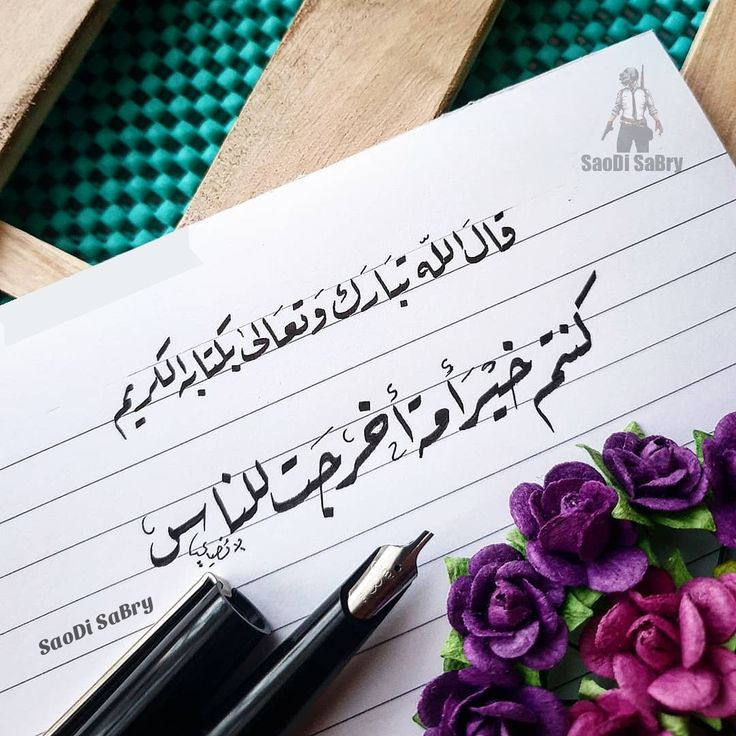 SaoDi SaBry
قالَ اللّه تبَارَك وَتعَالىٰ بكتابه الكريم
كنتم خيْرَ أمة أخرجَت للناس
SaoDi SaBry